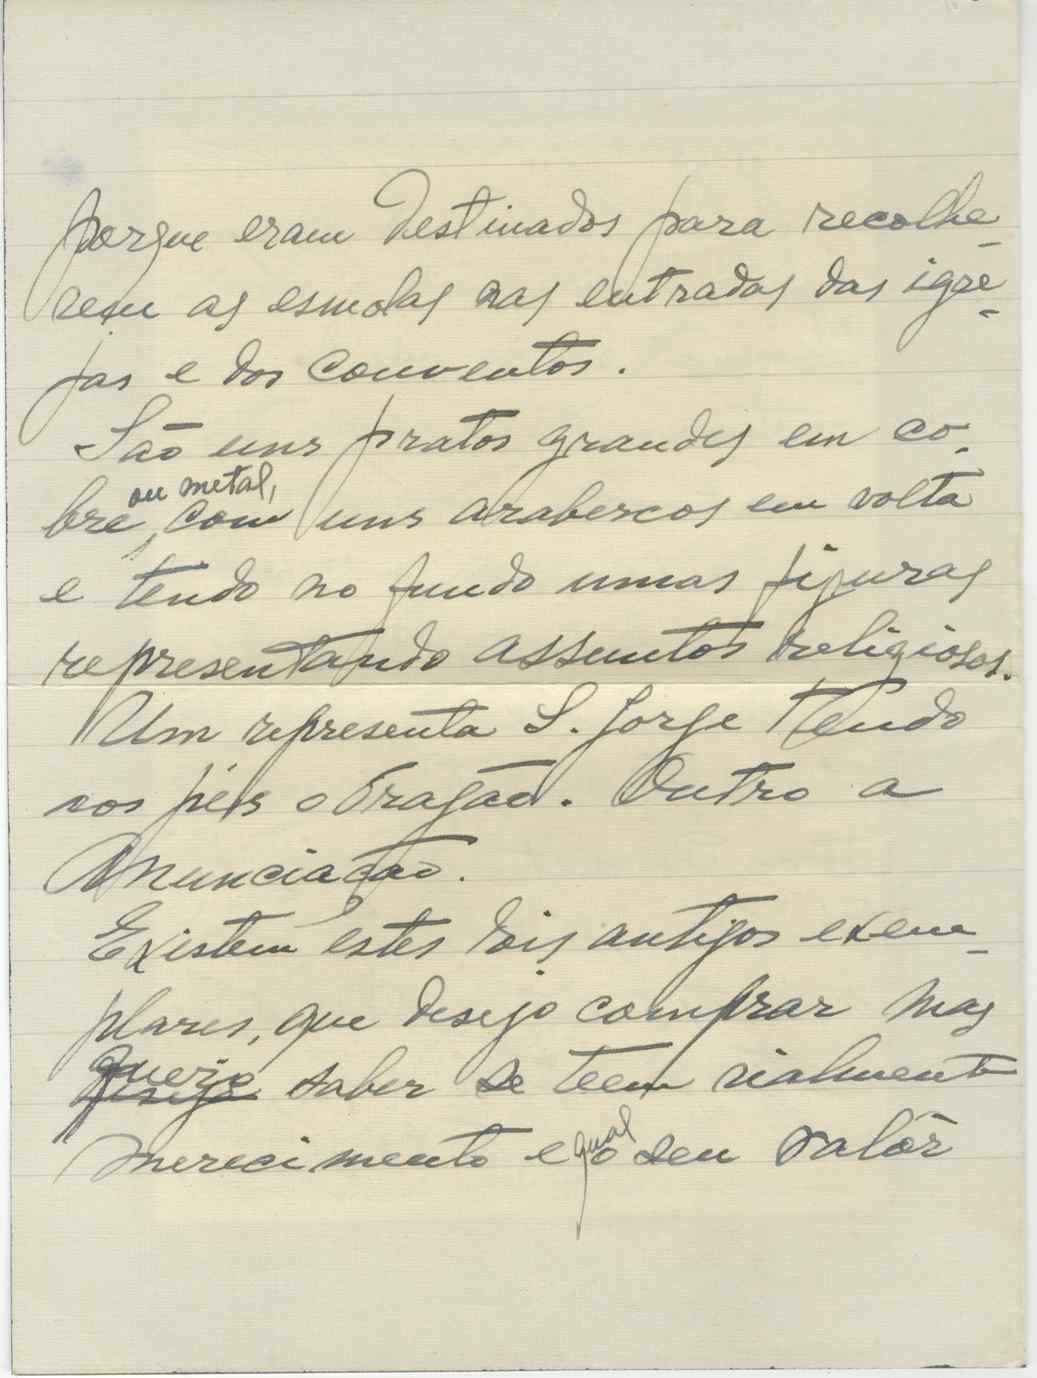 porque eram destinados para recolhe-
rem as esmolas nas entradas das igre-
jas e dos conventos.
São uns pratos grandes em co-
ou metal,
bre, com uns arabescos em volta
e tendo no fundo umas figuras
representando assuntos religiosos.
Um representa S. Jorge tendo
nos pés o dragão. Outro a
Anunciação.
Existem estes dois antigos exem-
plares, que desejo comprar mas
quero
desejo saber se teem rialmente
qual
merecimento e o seu valôr